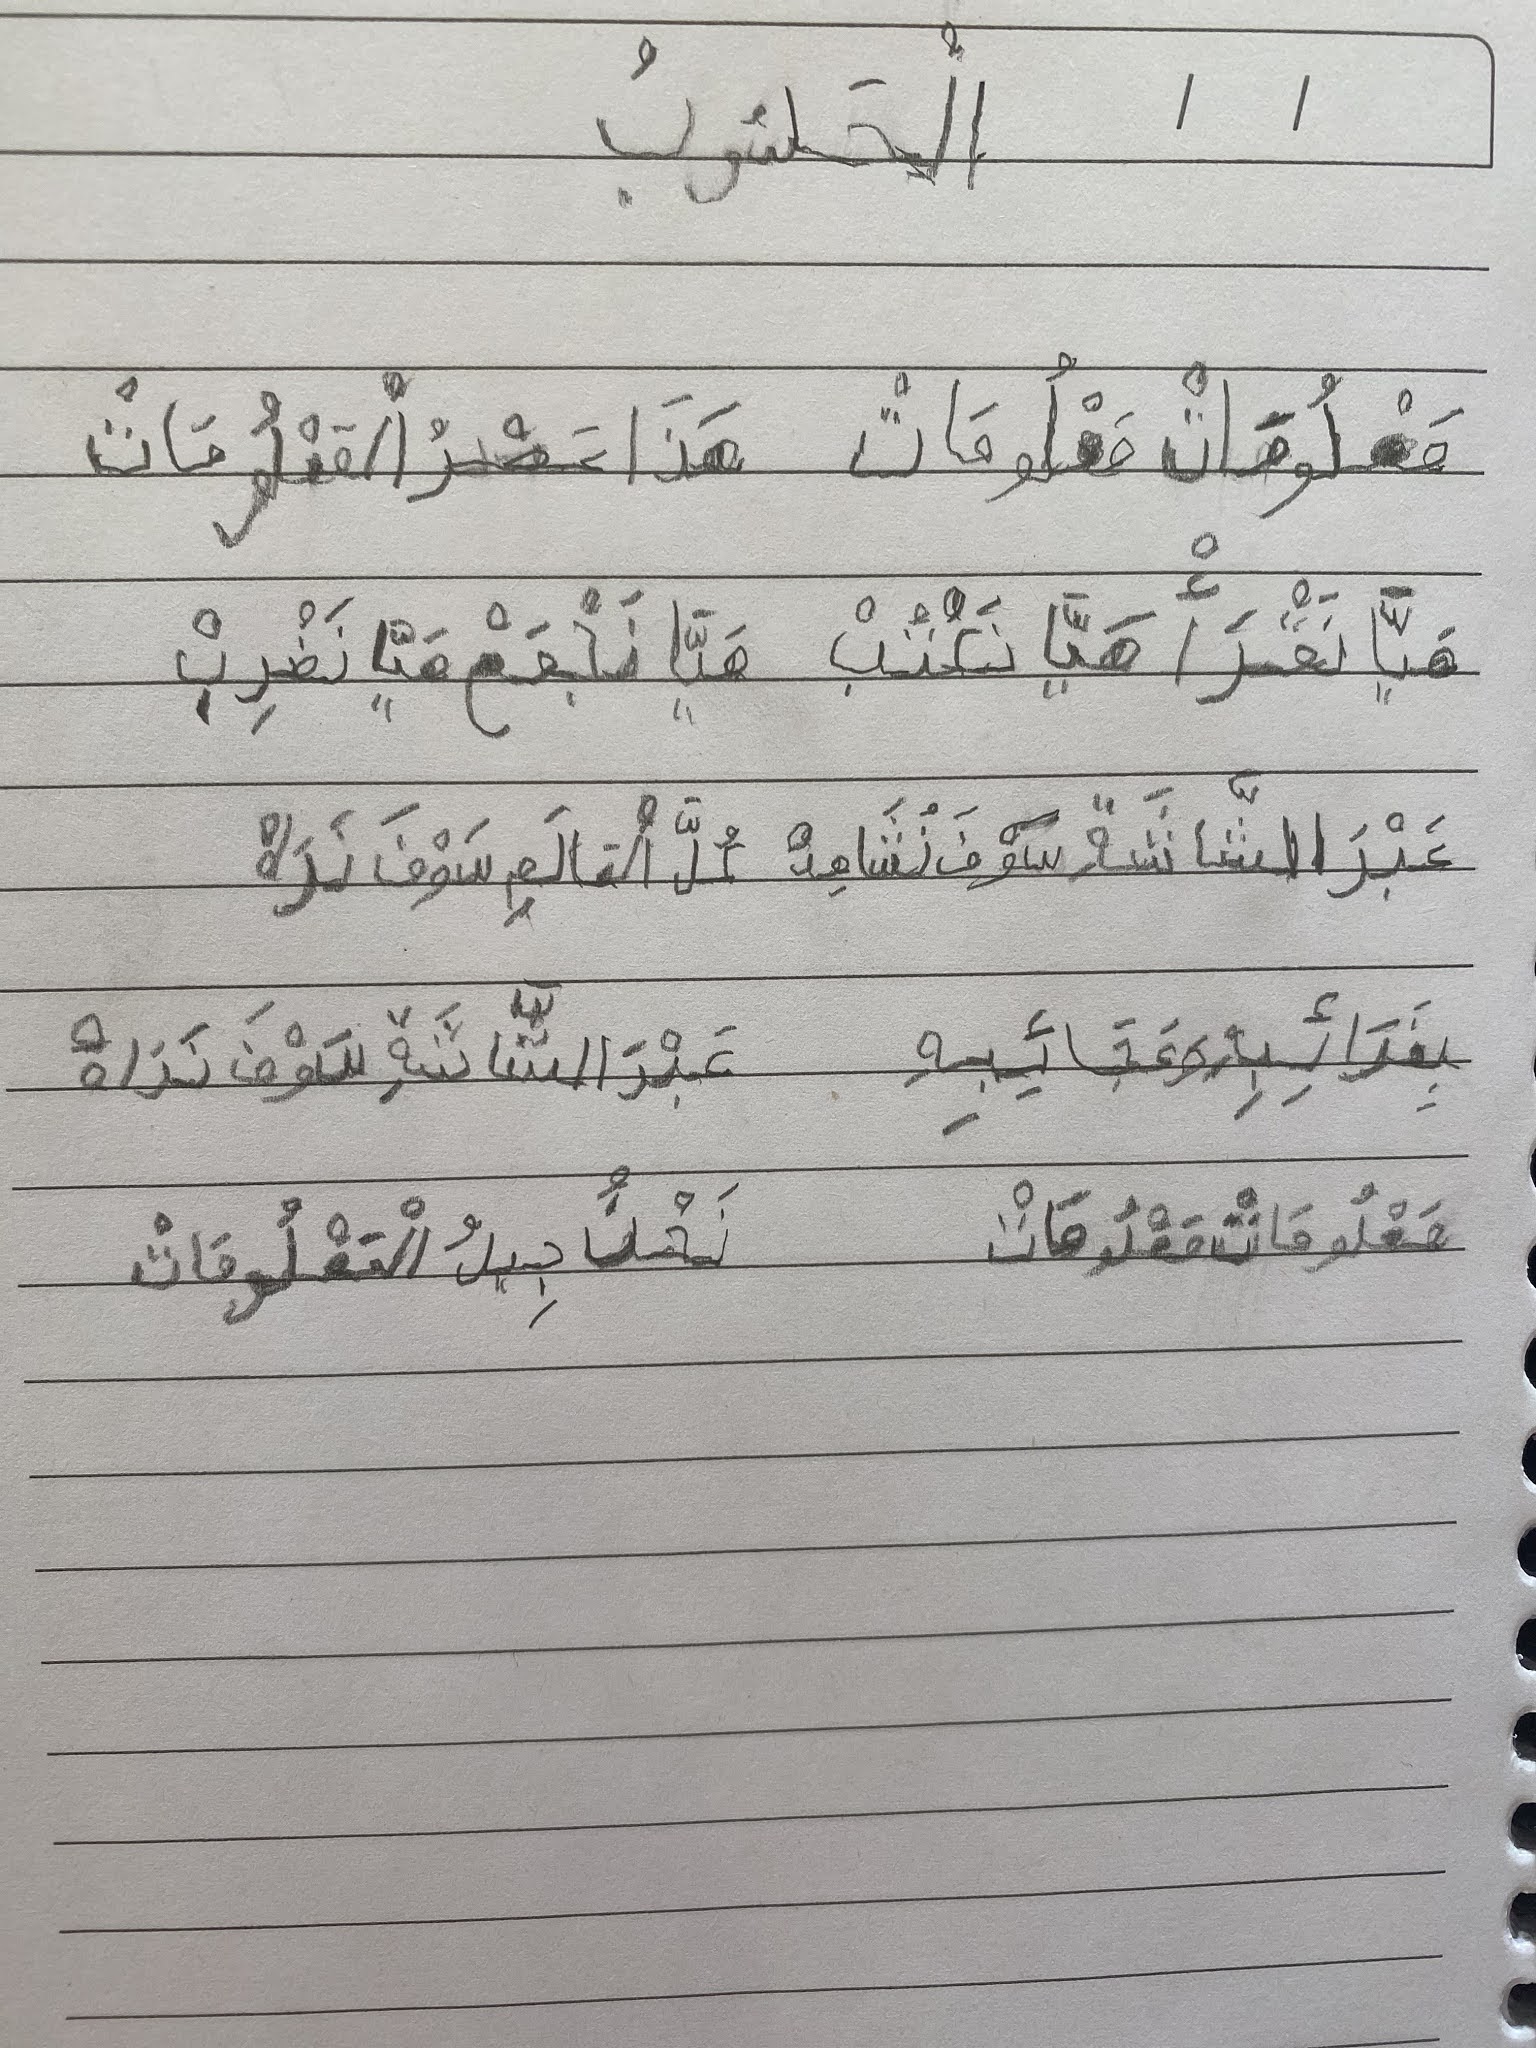 الْحَاسُوبُ
مَعْلُومَاتْ مَعْلُومَاتْ هَذَا عَصْرُ الْمَعْلُومَاتْ
هَيَّا نَقْرَأْ هَيَّا نَكْتُبْ هَيَّا نَجْمَعْ هَيَّا نَضْرِبْ
عَبْرَ الشَّاشَةِ سَوْفَ نُشَاهِدْ كُلَّ الْعَالَمِ سَوْفَ نَرَاهْ
بِغَرَائِبِهِ وَعَجَائِبِهِ عَبْرَ الشَّاشَةِ سَوْفَ نَرَاهْ
مَعْلُومَاتْ مَعْلُومَاتْ نَحْنُ جِيلُ الْمَعْلُومَاتْ